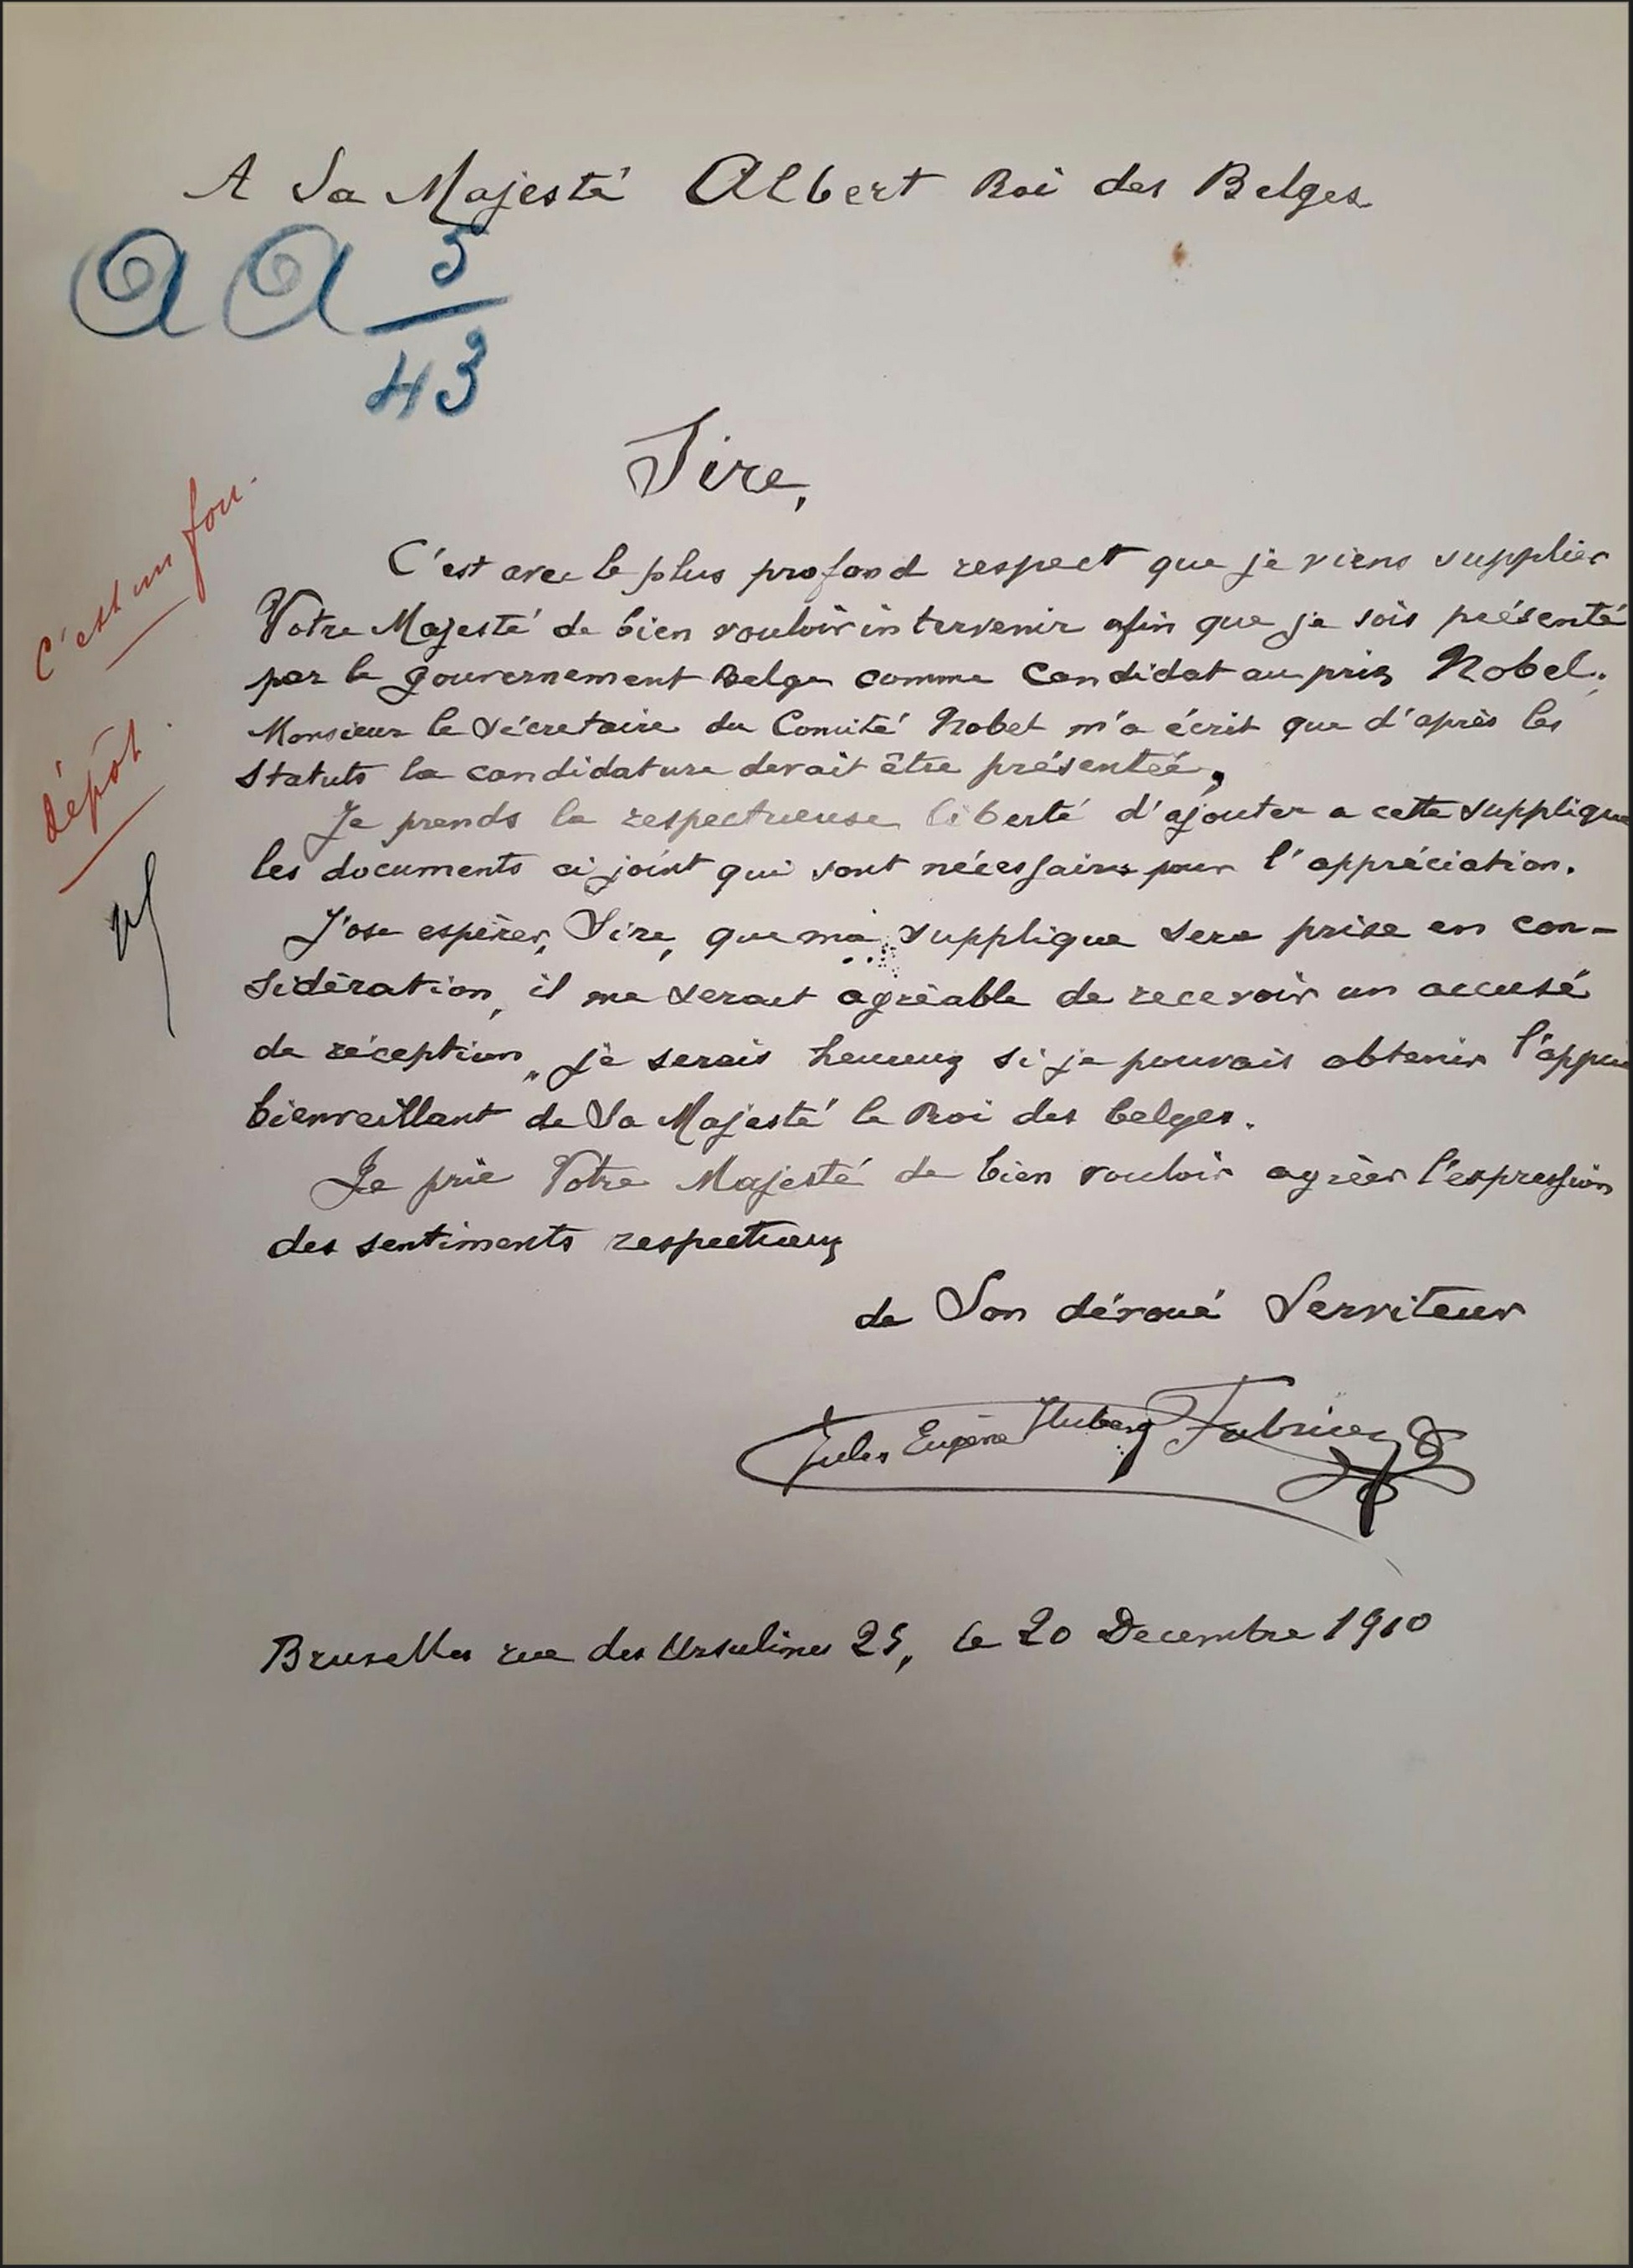 A Sa Majesté Albert Roi des Belges
AA 5
43
Sire,
C'est un fou.
dépôt.
C'est avec le plus profond respect que je viens supplier
Votre Majesté de bien vouloir intervenir afin que je sois présenté
par le gouvernement Belge comme Candidat au prix Nobel.
Monsieur le Sécretaire du Comité Nobel m'a écrit que d'après les
Statuts la candidature devait être présentée,
Je prends la respectueuse liberté d'ajouter a cette supplique
les documents ci joint qui sont nécessaires pour l'appréciation.
J'ose espèrer, Sire, que ma supplique sera prise en con-
sidèration, il me serait agrèable de recevoir un accusé
de réception, je serais heureux si je pouvais obtenir l'appui
bienveillant de Sa Majesté le Roi des belges.
Je prie Votre Majesté de bien vouloir agrèer l'expression
des sentiments respectueux
de Son dévoué Serviteur
Jules Eugène
Bruxelles rue des Ursulines 25, le 20 Decembre 1910